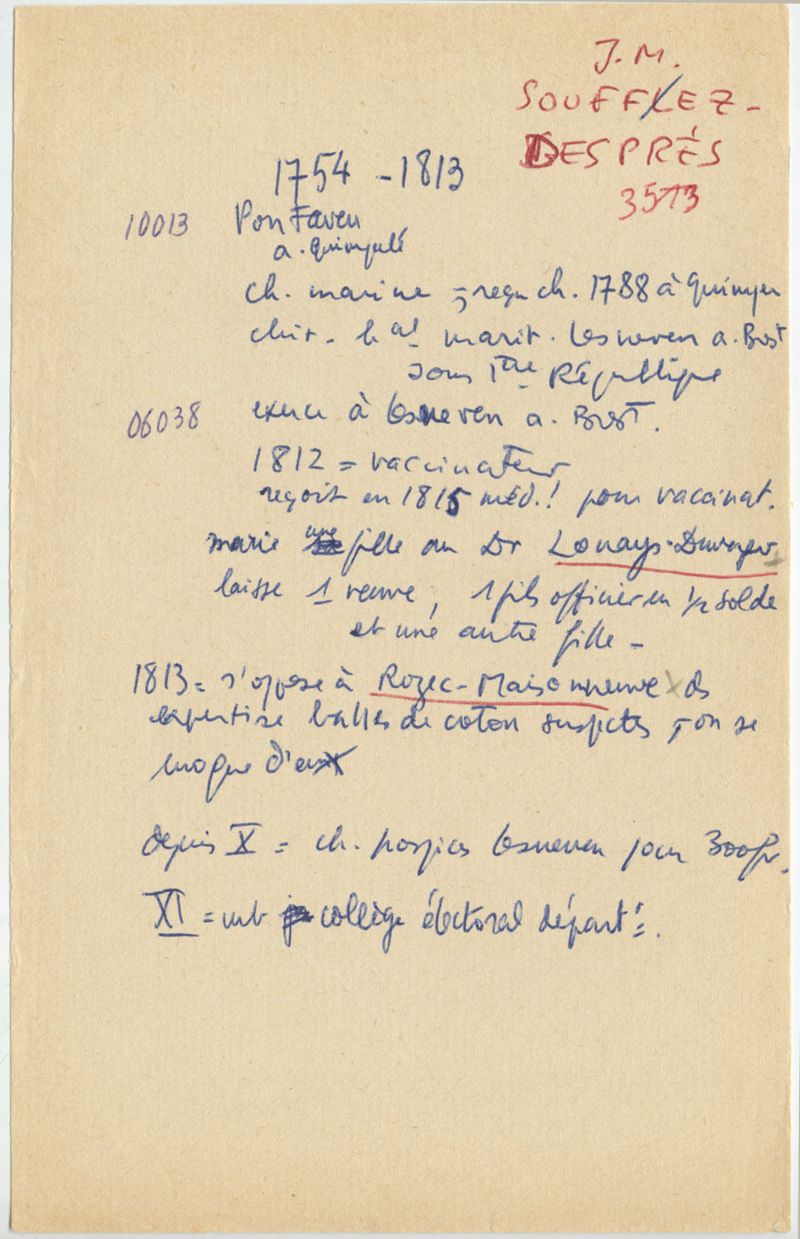 J. M.
SOUFFLEZ-
DESPRÉS
3513
1754 - 1813
10013 Pon Faven
a. Quimperlé
ch. marine ; reçu ch. 1788 à Quimper
chir. hal marit. Lesneven a. Brest
sous 1ère République
06038 exerce à Lesneven a. Brest.
1812 = vaccinateur
reçoit en 1815 méd.! pour vaccinat.
marie une fille au Dr Lonays-Duverger
laisse 1 veuve, 1 fils officier en 1/2 solde
et une autre fille -
1813 = s'oppose à Rozec-Maisonneuve ds
expertise balles de coton suspectes, on se
moque d'eux
depuis X = ch. hospices Lesneven pour 300fr.
XI = mb collège électoral départt.